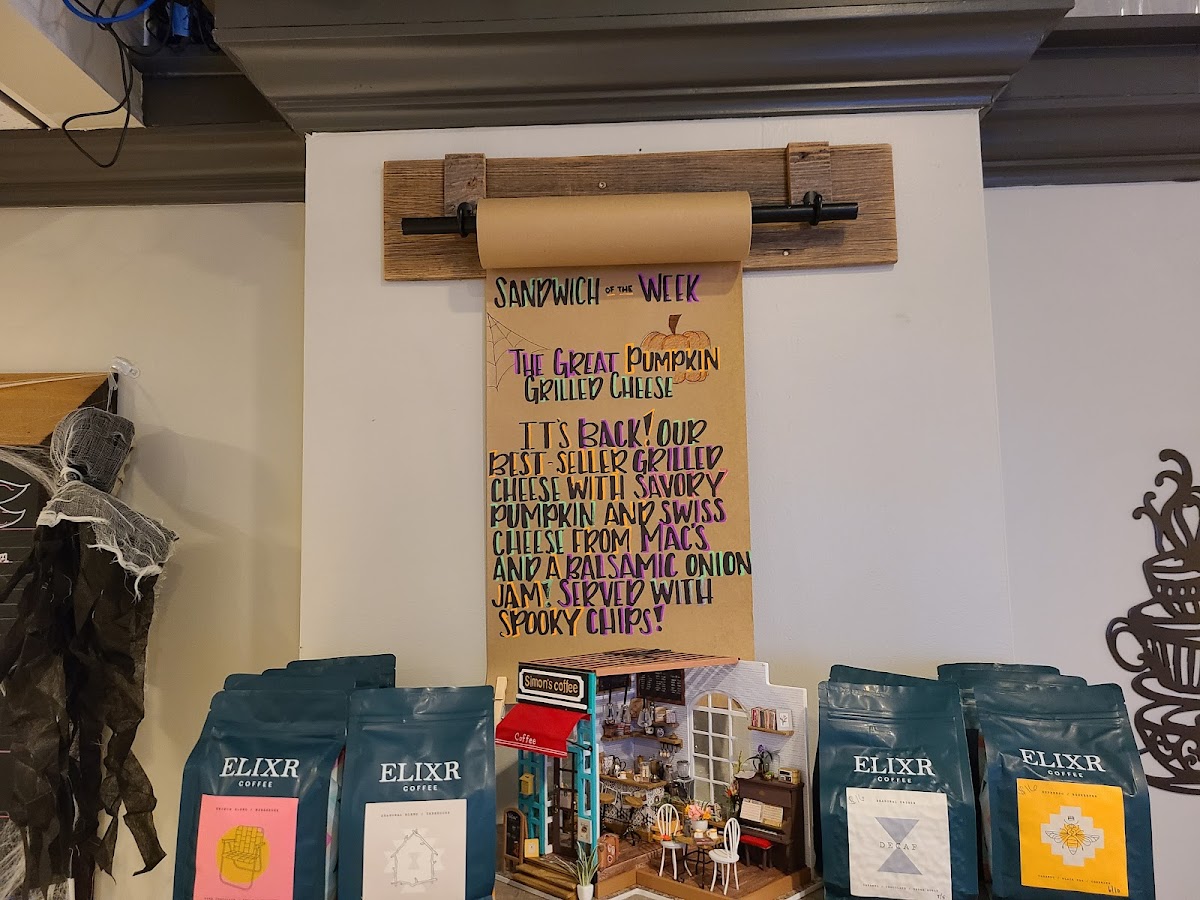 SANDWICH OF THE WEEK
THE GREAT PUMPKIN
GRILLED CHEESE
IT'S BACK! OUR
BEST-SELLER GRILLED
CHEESE WITH SAVORY
PUMPKIN AND SWISS
CHEESE FROM MAC'S
AND A BALSAMIC ONION
JAM! SERVED WITH
SPOOKY CHIPS!
Simon's coffee
Coffee
ELIXR
COFFEE
ELIXR
COFFEE
ELIXR
COFFEE
DECAF
ELIXR
COFFEE